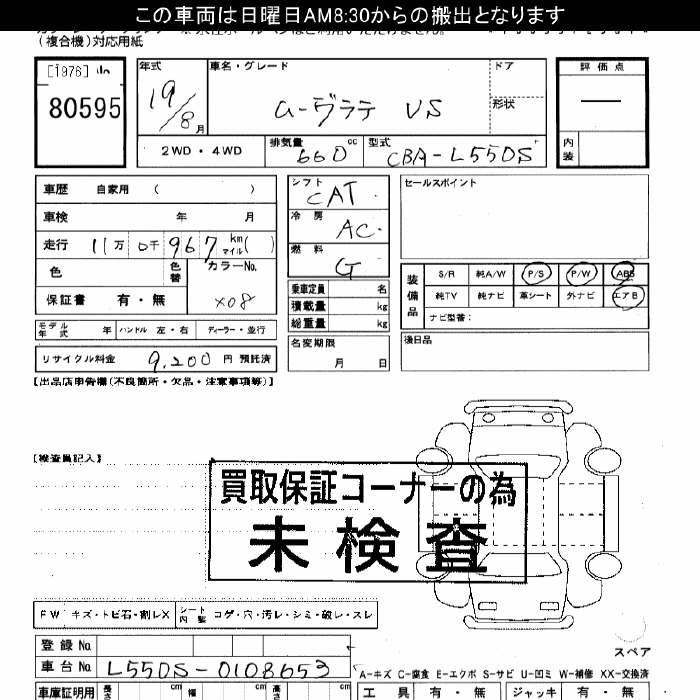 この車両は日曜日AM8:30からの搬出となります
(複合機)対応用紙
[1976]
80595
年式
19/8月
車名・グレード
ムーヴラテ VS
ドア
形状
評価点
内装
2WD・4WD
排気量 660 cc
型式 CBA-L550S
車歴 自家用 ( )
車検 年 月
走行 11万 0千 967 km マイル( )
色 色替 カラーNo. X08
保証書 有・無
シフト CAT
冷房 AC
燃料 G
乗車定員 名
積載量 kg
総重量 kg
セールスポイント
装備品 S/R 純A/W P/S P/W ABS
純TV 純ナビ 革シート 外ナビ エアB
ナビ型番:
モデル年式 年 ハンドル 左・右 ディーラー・並行
リサイクル料金 9,200 円 預託済
名変期限 月 日
後日品
【出品店申告欄(不良箇所・欠品・注意事項等)】
【検査員記入】
買取保証コーナーの為
未検査
FW キズ・トビ石・割レX シート内装 コゲ・穴・汚レ・シミ・破レ・スレ
スペア
登録No.
車台No. L550S-0108653
A-キズ C-腐食 E-エクボ S-サビ U-凹ミ W-補修 XX-交換済
車庫証明用 長さ cm 幅 cm 高さ cm
工具 有・無 ジャッキ 有・無